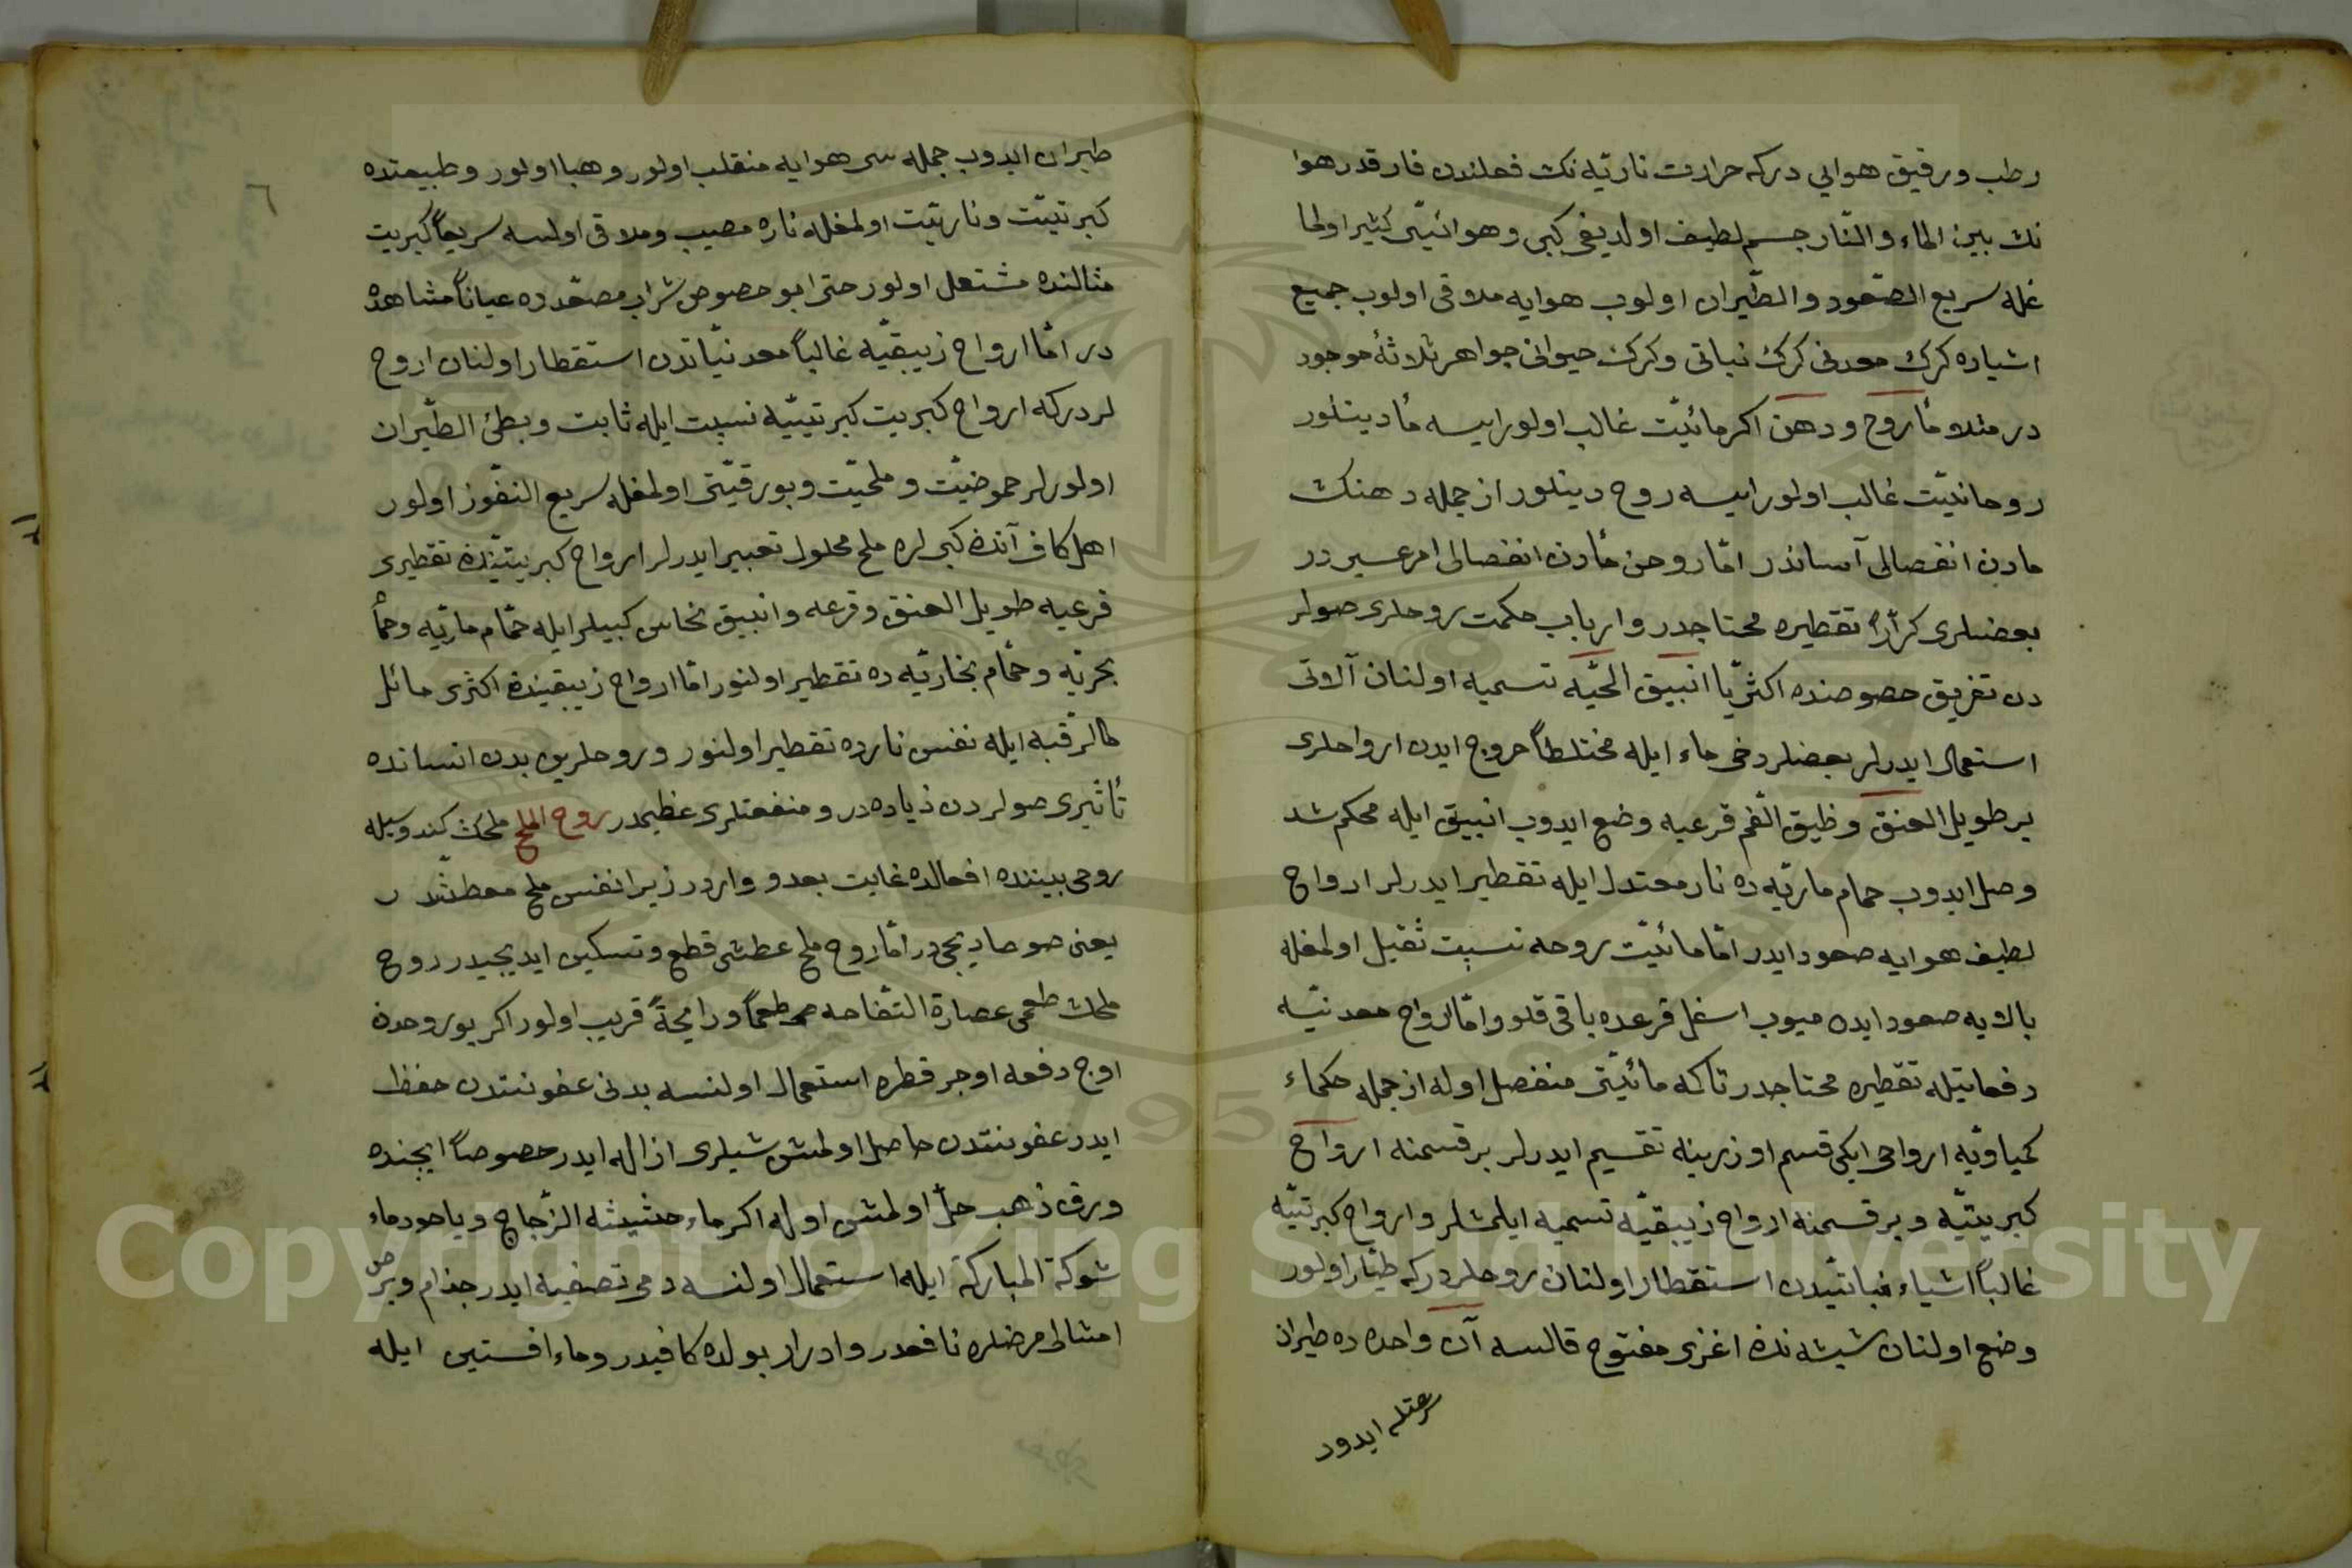 رطب ورقيق هوايي دركه حرارت ناريّه نك فعلندن فار قدر هوا
نك بين الماء والنّار جسم لطيف اولديغى كبى وهوائيّتى كثير اولما
غله سريع الصّعود والطّيران اولوب هوايه ملاقى اولوب جميع
اشياده كرك معدنى كرك نباتى وكرك حيوانى جواهر ثلاثۀ موجود
در مثلا مأ روح ودهن اكر مائيّت غالب اولور ايسه مأ دينلور
روحانيّت غالب اولور ايسه روح دينلور از جمله دهنك
مادن انفصالى آساندر امّا روحن مأدن انفصالى امر عسير در
بعضلرى كراراً تقطيره محتاجدر وارباب حكمت روحلرى صولر
دن تفريق خصوصنده اكثريّا انبيق الحيّه تسميه اولنان آلاتى
استعمال ايدرلر بعضلر دخى ماء ايله مختلطاً خروج ايدن ارواحلرى
بر طويل العنق وظيق الفم قرعيه وضع ايدوب انبيق ايله محكم شد
وصل ايدوب حمام ماريّه ده نار معتدل ايله تقطير ايدرلر ارواح
لطيف هوايه صعود ايدر امّا مائيّت روحه نسبت ثقيل اولمغله
بالايه صعود ايده ميوب اسفل قرعده باقى قلور وامّا ارواح معدنيّه
دفعاتيله تقطيره محتاجدر تاكه مائيّتى منفصل اوله از جمله حكماء
كمياويّه ارواحى ايكى قسم اوزرينه تقسيم ايدرلر بر قسمنه ارواح
كبريتيّه وبر قسمنه ارواح زيبقيّه تسميه ايلمشلر وارواح كبرتيّه
غالباً اشياء نباتيّدن استقطار اولنان روحلردركه طيّار اولور
وضع اولنان شيشه نك اغزى مفتوح قالسه آن واحده ده طيران
سرعتله ايدوب
٦
طيران ايدوب جمله سى هوايه منقلب اولور وهبا اولور وطبيعتده
كبرتيّت وناريّت اولمغله ناره مصيب وملاقى اولسه سريعاً كبريت
مثالنده مشتعل اولور حتى ابو خصوص شراب مصعّدده عياناً مشاهد
در امّا ارواح زيبقيّه غالباً معدنيّاتدن استقطار اولنان اروح
لردركه ارواح كبريت كبرتيّيه نسبت ايله ثابت وبطئ الطّيران
اولورلر حموضيّت وملحيّت وبورقيّتى اولمغله سريع النفّوز اولور
اهل كاف آنك كبيلره ملح محلول تعبير ايدرلر ارواح كبريتيّنك تقطيرى
قرعيه طويل العنق وقرعه وانبيق نحاس كبيلر ايله حمّام ماريّه وحمّأ
بحريّه وحمّام بخاريّه ده تقطير اولنور امّا ارواح زيبقينك اكثرى مائل
كالرّقبه ايله نفس نارده تقطير اولنور وروحلرين بدن انسانده
تأثيرى صولردن زياده در ومنفعتلرى عظيمدر روح الملح ملحك كندوسيله
روحى بيننده افعالده غايت بعد و واردر زيرا نفس ملح معطشدر
يعنى صوصاديجيدر امّا روح ملح عطشى قطع وتسكين ايديجيدر روح
ملحك طعمى عصارة التّفاحه طعماً ورايحةً قريب اولور اكر بو روحدن
اوج دفعه اوجر قطره استعمال اولنسه بدنى عفونتدن حفظ
ايدر عفونتدن حاصل اولمش شيلرى ازاله ايدر خصوصاً ايچنده
ورق ذهب حلّ اولمش اوله اكر ماء حشيشه الزّجاج وياخود ماء
شوكة المباركة ايله استعمال اولنسه دمى تصفيه ايدر جذام وبرص
امثالى مرضلره نافعدر وادرار بولده كافيدر وماء افسنتين ايله